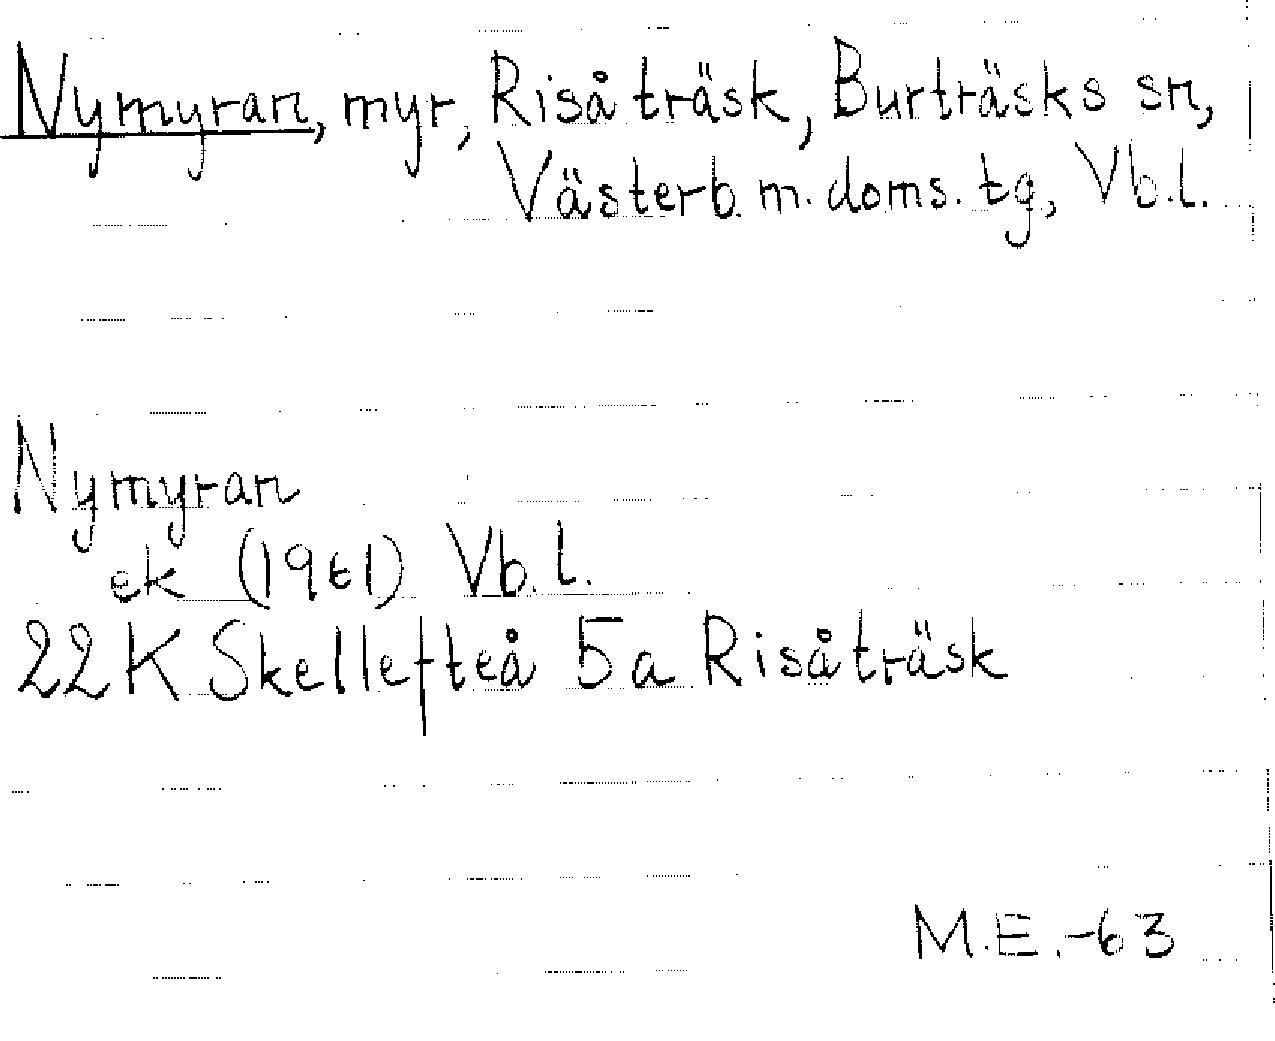 Nymyran, myr, Risåträsk, Burträsks sn,
Västerb. m. doms. tg, Vb.l.
Nymyran
ek (1961) Vb.l.
22K Skellefteå 5a Risåträsk
M.E.-63